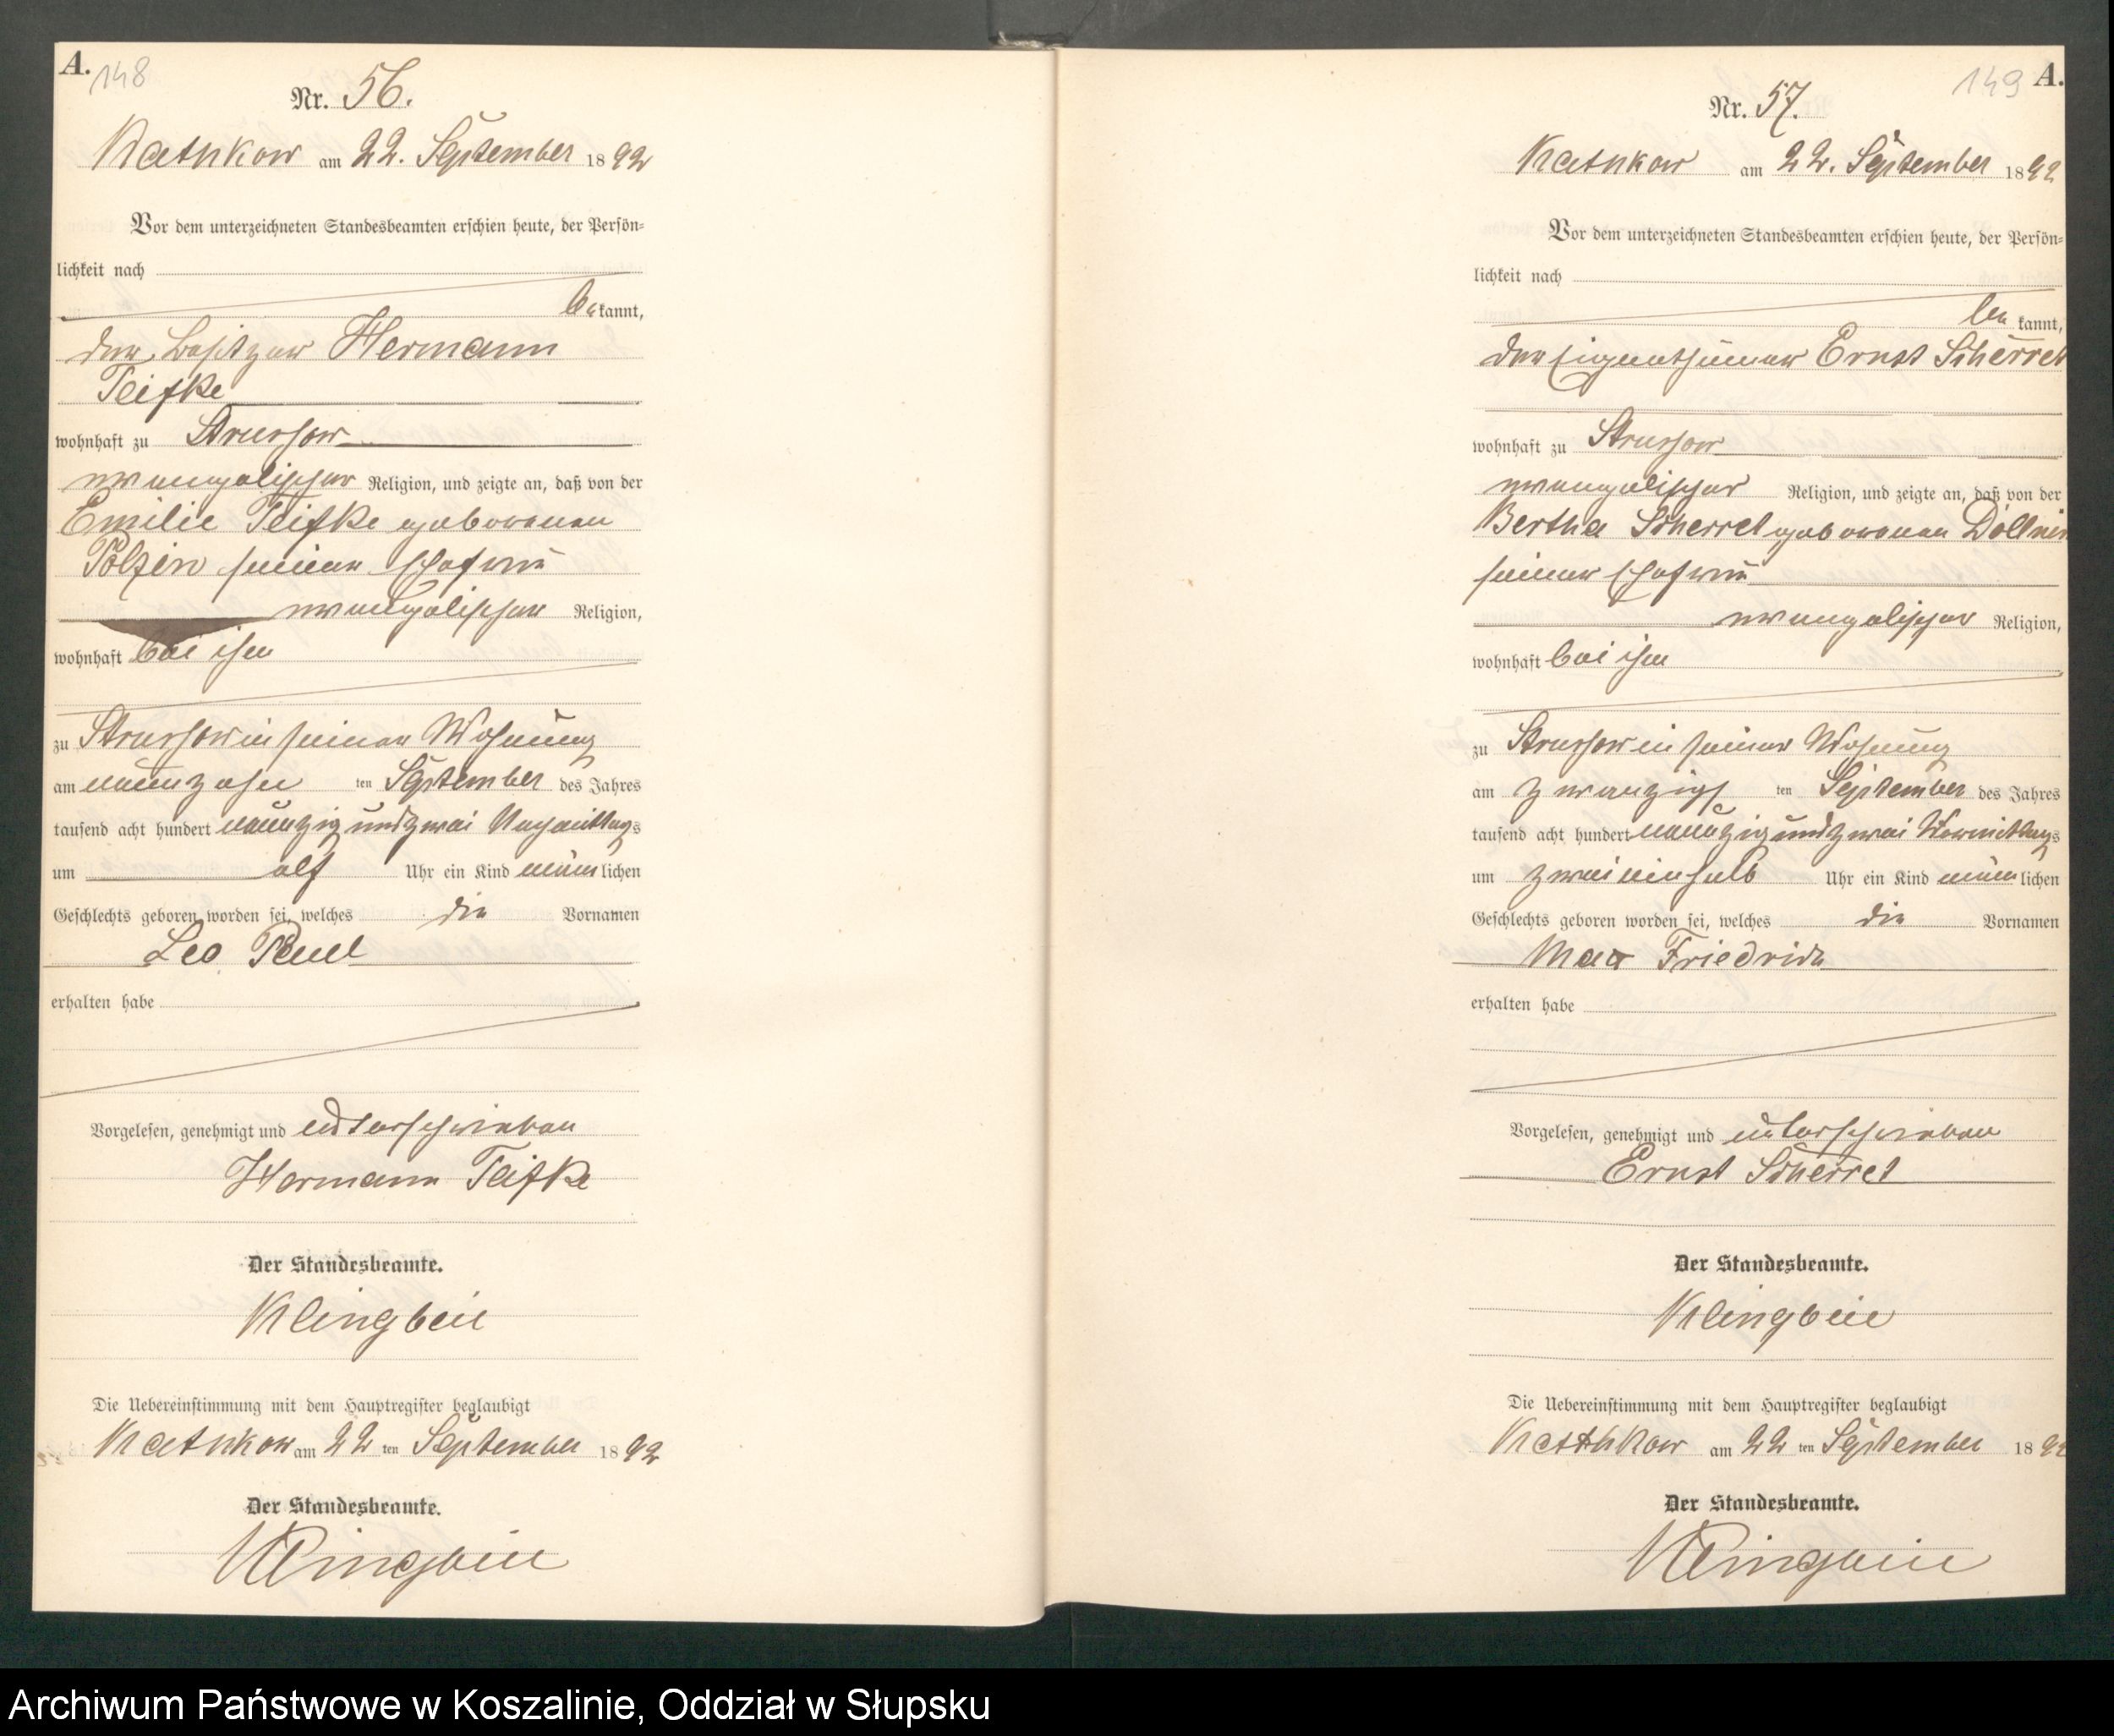 A.
148
Nr. 56.
Kathkow am 22. September 1892
Vor dem unterzeichneten Standesbeamten erschien heute, der Persön-
lichkeit nach
bekannt,
der Besitzer Hermann
Teifke
wohnhaft zu Strussow
evangelischer Religion, und zeigte an, daß von der
Emilie Teifke geborenen
Polzin seiner Ehefrau
evangelischer Religion,
wohnhaft bei ihm
zu Strussow in seiner Wohnung
am neunzehn ten September des Jahres
tausend acht hundert neunzig und zwei Nachmittags
um elf Uhr ein Kind männlichen
Geschlechts geboren worden sei, welches die Vornamen
Leo Paul
erhalten habe
Vorgelesen, genehmigt und unterschrieben
Hermann Teifke
Der Standesbeamte.
Klingbeil
Die Uebereinstimmung mit dem Hauptregister beglaubigt
Kathkow am 22 ten September 1892
Der Standesbeamte.
Klingbeil
149
A.
Nr. 57.
Kathkow am 22. September 1892
Vor dem unterzeichneten Standesbeamten erschien heute, der Persön-
lichkeit nach
bekannt,
der Eigenthümer Ernst Scherret
wohnhaft zu Strussow
evangelischer Religion, und zeigte an, daß von der
Bertha Scherret geborenen
seiner Ehefrau
evangelischer Religion,
wohnhaft bei ihm
zu Strussow in seiner Wohnung
am zwanzigs ten September des Jahres
tausend acht hundert neunzig und zwei Vormittags
um zweieinhalb Uhr ein Kind männlichen
Geschlechts geboren worden sei, welches die Vornamen
Max Friedrich
erhalten habe
Vorgelesen, genehmigt und unterschrieben
Ernst Scherret
Der Standesbeamte.
Klingbeil
Die Uebereinstimmung mit dem Hauptregister beglaubigt
Kathkow am 22 ten September 1892
Der Standesbeamte.
Klingbeil
Archiwum Państwowe w Koszalinie, Oddział w Słupsku